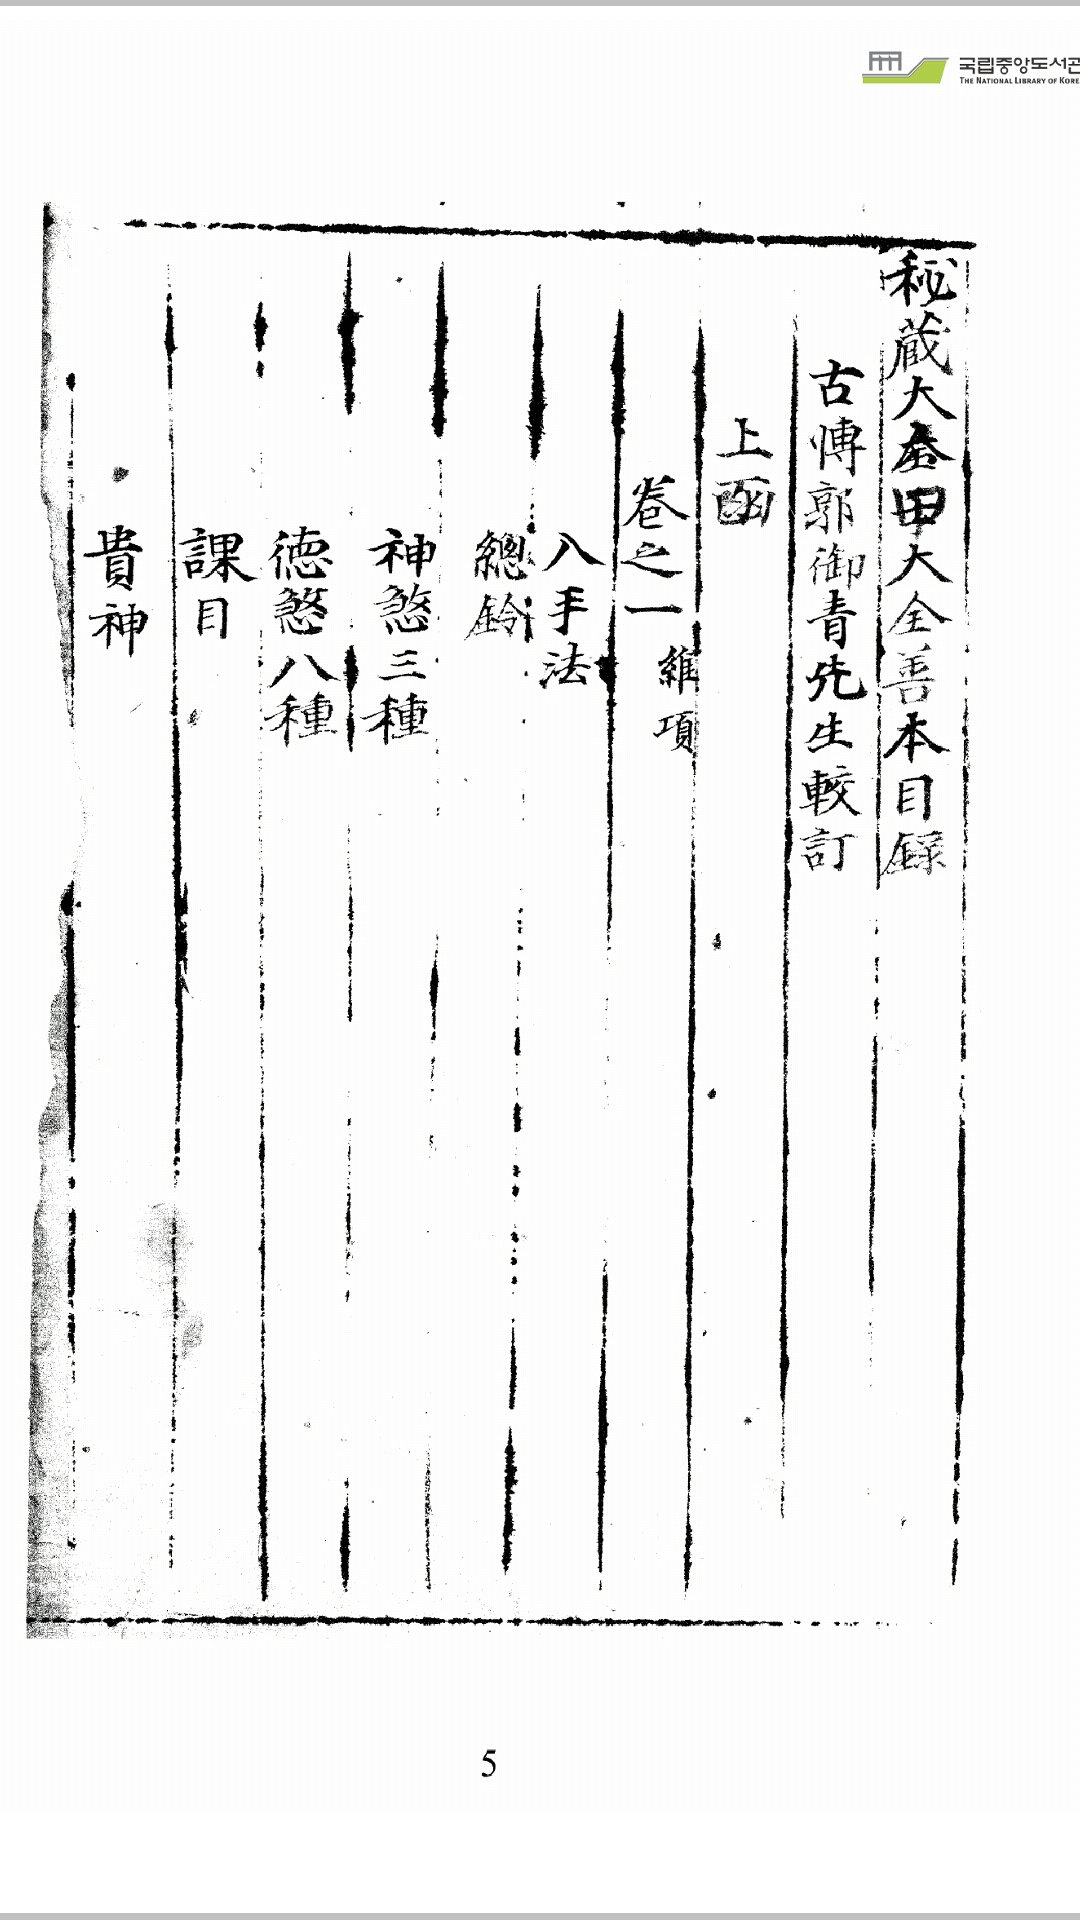 국립중앙도서관
THE NATIONAL LIBRARY OF KORE
秘蔵大六壬大全善本目録
古博郭御青先生較訂
上函
卷之一
維項
八手法
總鈐
神煞三種
德煞八種
課目
貴神
5